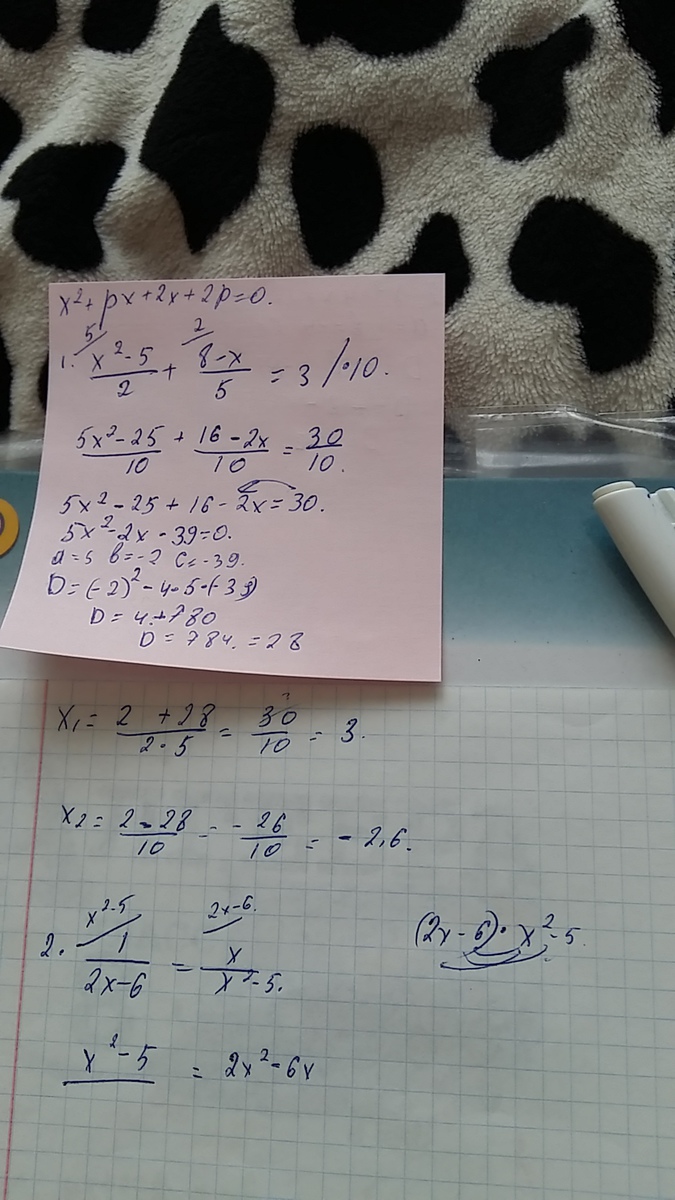 x² + px + 2x + 2p = 0.
5/ 2/
1. (x² - 5)/2 + (8 - x)/5 = 3 /·10.
(5x² - 25)/10 + (16 - 2x)/10 = 30/10.
5x² - 25 + 16 - 2x = 30.
5x² - 2x - 39 = 0.
a = 5 b = -2 c = -39.
D = (-2)² - 4·5·(-39)
D = 4 + 780
D = 784. = 28
x₁ = (2 + 28)/(2·5) = 30/10 = 3.
x₂ = (2 - 28)/10 = -26/10 = -2,6.
x² - 5/ 2x - 6/
2. 1/(2x - 6) = x/(x² - 5). (2x - 6) · x² - 5
x² - 5 = 2x² - 6x